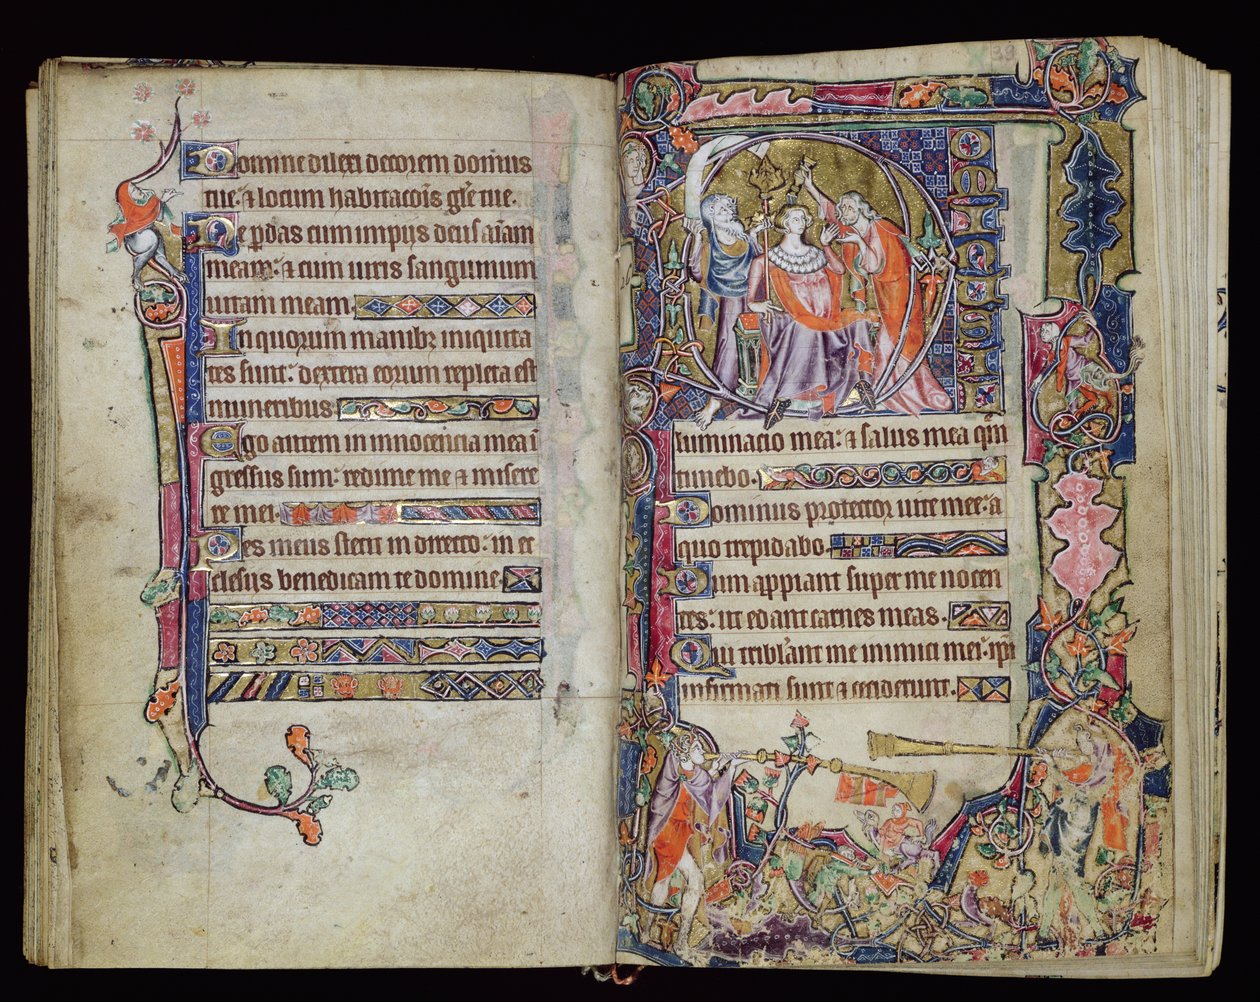 Domine dilexi decorem domus
tue. & locum habitacōis gl̄e tue.
Ne p̄das cum impijs deus aīam
meam: & cum uiris sanguinum
uitam meam.
In quorum manibʒ iniquita
tes sunt: dextera eorum repleta est
muneribus.
Ego autem in innocencia mea ī
gressus sum: redime me & misere
re mei.
Pes meus stetit in directo: in ec
clesijs benedicam te domine.
39
Dominus
illuminacio mea: & salus mea quē
timebo.
Dominus protector uite mee: a
quo trepidabo.
Dum appiant super me nocen
tes: ut edant carnes meas.
Qui tribl̄ant me inimici mei: ip̄i
infirmati sunt & ceciderunt.